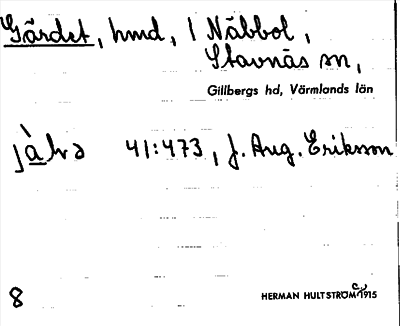 Gärdet, hmd, 1 Näbbol,
Stavnäs sn,
Gillbergs hd, Värmlands län
jàḻvə 41:473, J. Aug. Eriksson
8 HERMAN HULTSTRÖM C:a 1915